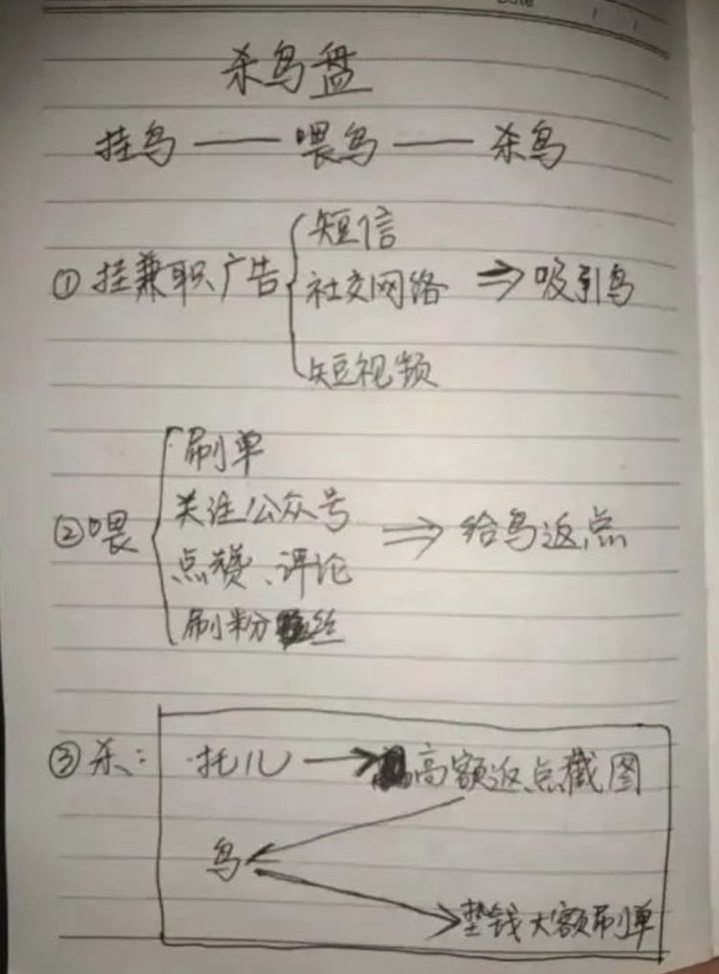 Date / /
杀鸟盘
挂鸟——喂鸟——杀鸟
①挂兼职广告
短信
社交网络
短视频
⇒吸引鸟
②喂
刷单
关注公众号
点赞、评论
刷粉丝
⇒给鸟返点
③杀:
托儿→高额返点截图
鸟
垫钱大额刷单